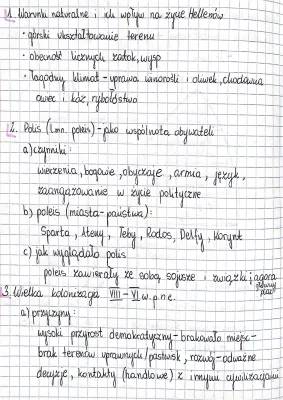 1. Warunki naturalne i ich wpływ na życie Hellenów
• górskie ukształtowanie terenu
• obecność licznych zatok, wysp
• łagodny klimat - uprawa winorośli i oliwek, chodowla
owiec i kóz, rybołóstwo
2. Polis (l.mn. poleis) - jako wspólnota obywateli
a) czynniki:
wierzenia, bogowie, obyczaje, armia, język,
zaangażowanie w życie polityczne
b) poleis (miasta-państwa):
Sparta, Ateny, Teby, Rodos, Delfy, Korynt
c) jak wyglądała polis
poleis zawierały ze sobą sojusze i związki, agora
główny plac
3. Wielka kolonizacja VIII-VI w. p.n.e.
a) przyczyny:
wysoki przyrost demokratyczny - brakowało miejsc -
brak terenów uprawnych/pastwisk, rozwój - odważne
decyzje, kontakty (handlowe) z innymi cywilizacjami